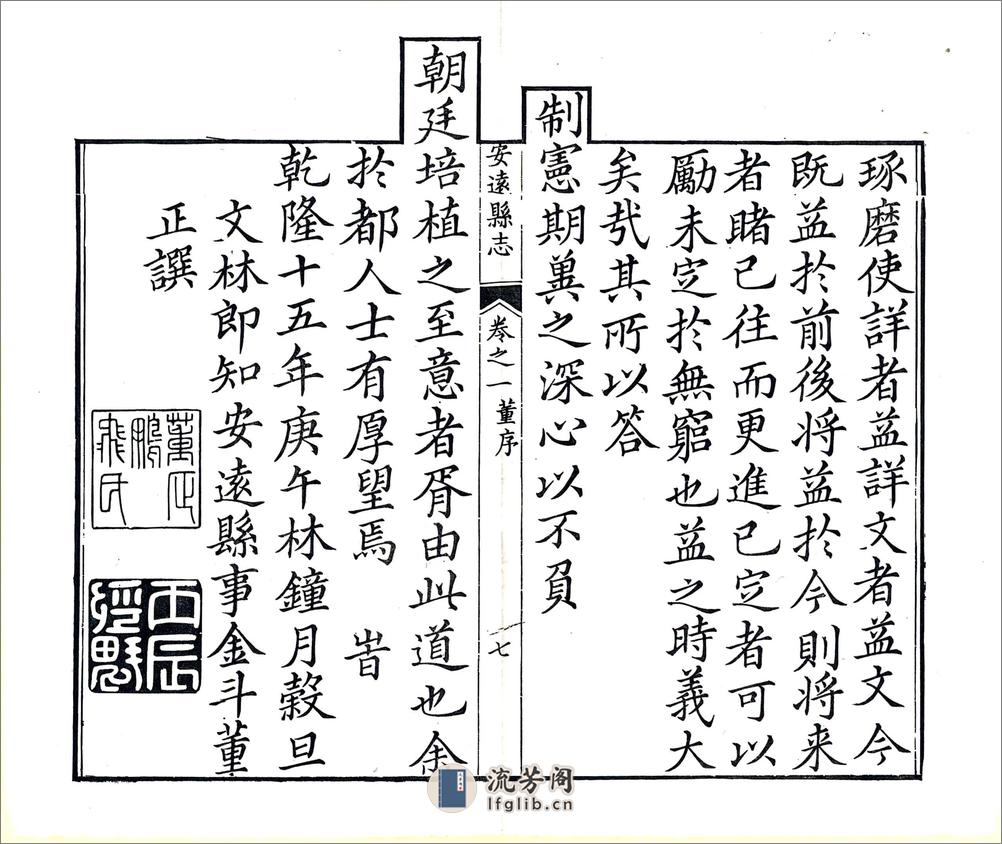 琢磨使詳者益詳文者益文今
既益扵前後将益扵今則将来
者睹已往而更進已定者可以
勵未定扵無窮也益之時義大
矣㢤其所以答
制憲期兾之深心以不負
安遠縣志
卷之一董序
七
朝廷培植之至意者胥由此道也余
扵都人士有厚望焉 旹
乾隆十五年庚午林鐘月榖旦
文林郎知安遠縣事金斗董
正譔
流芳阁
lfglib.cn